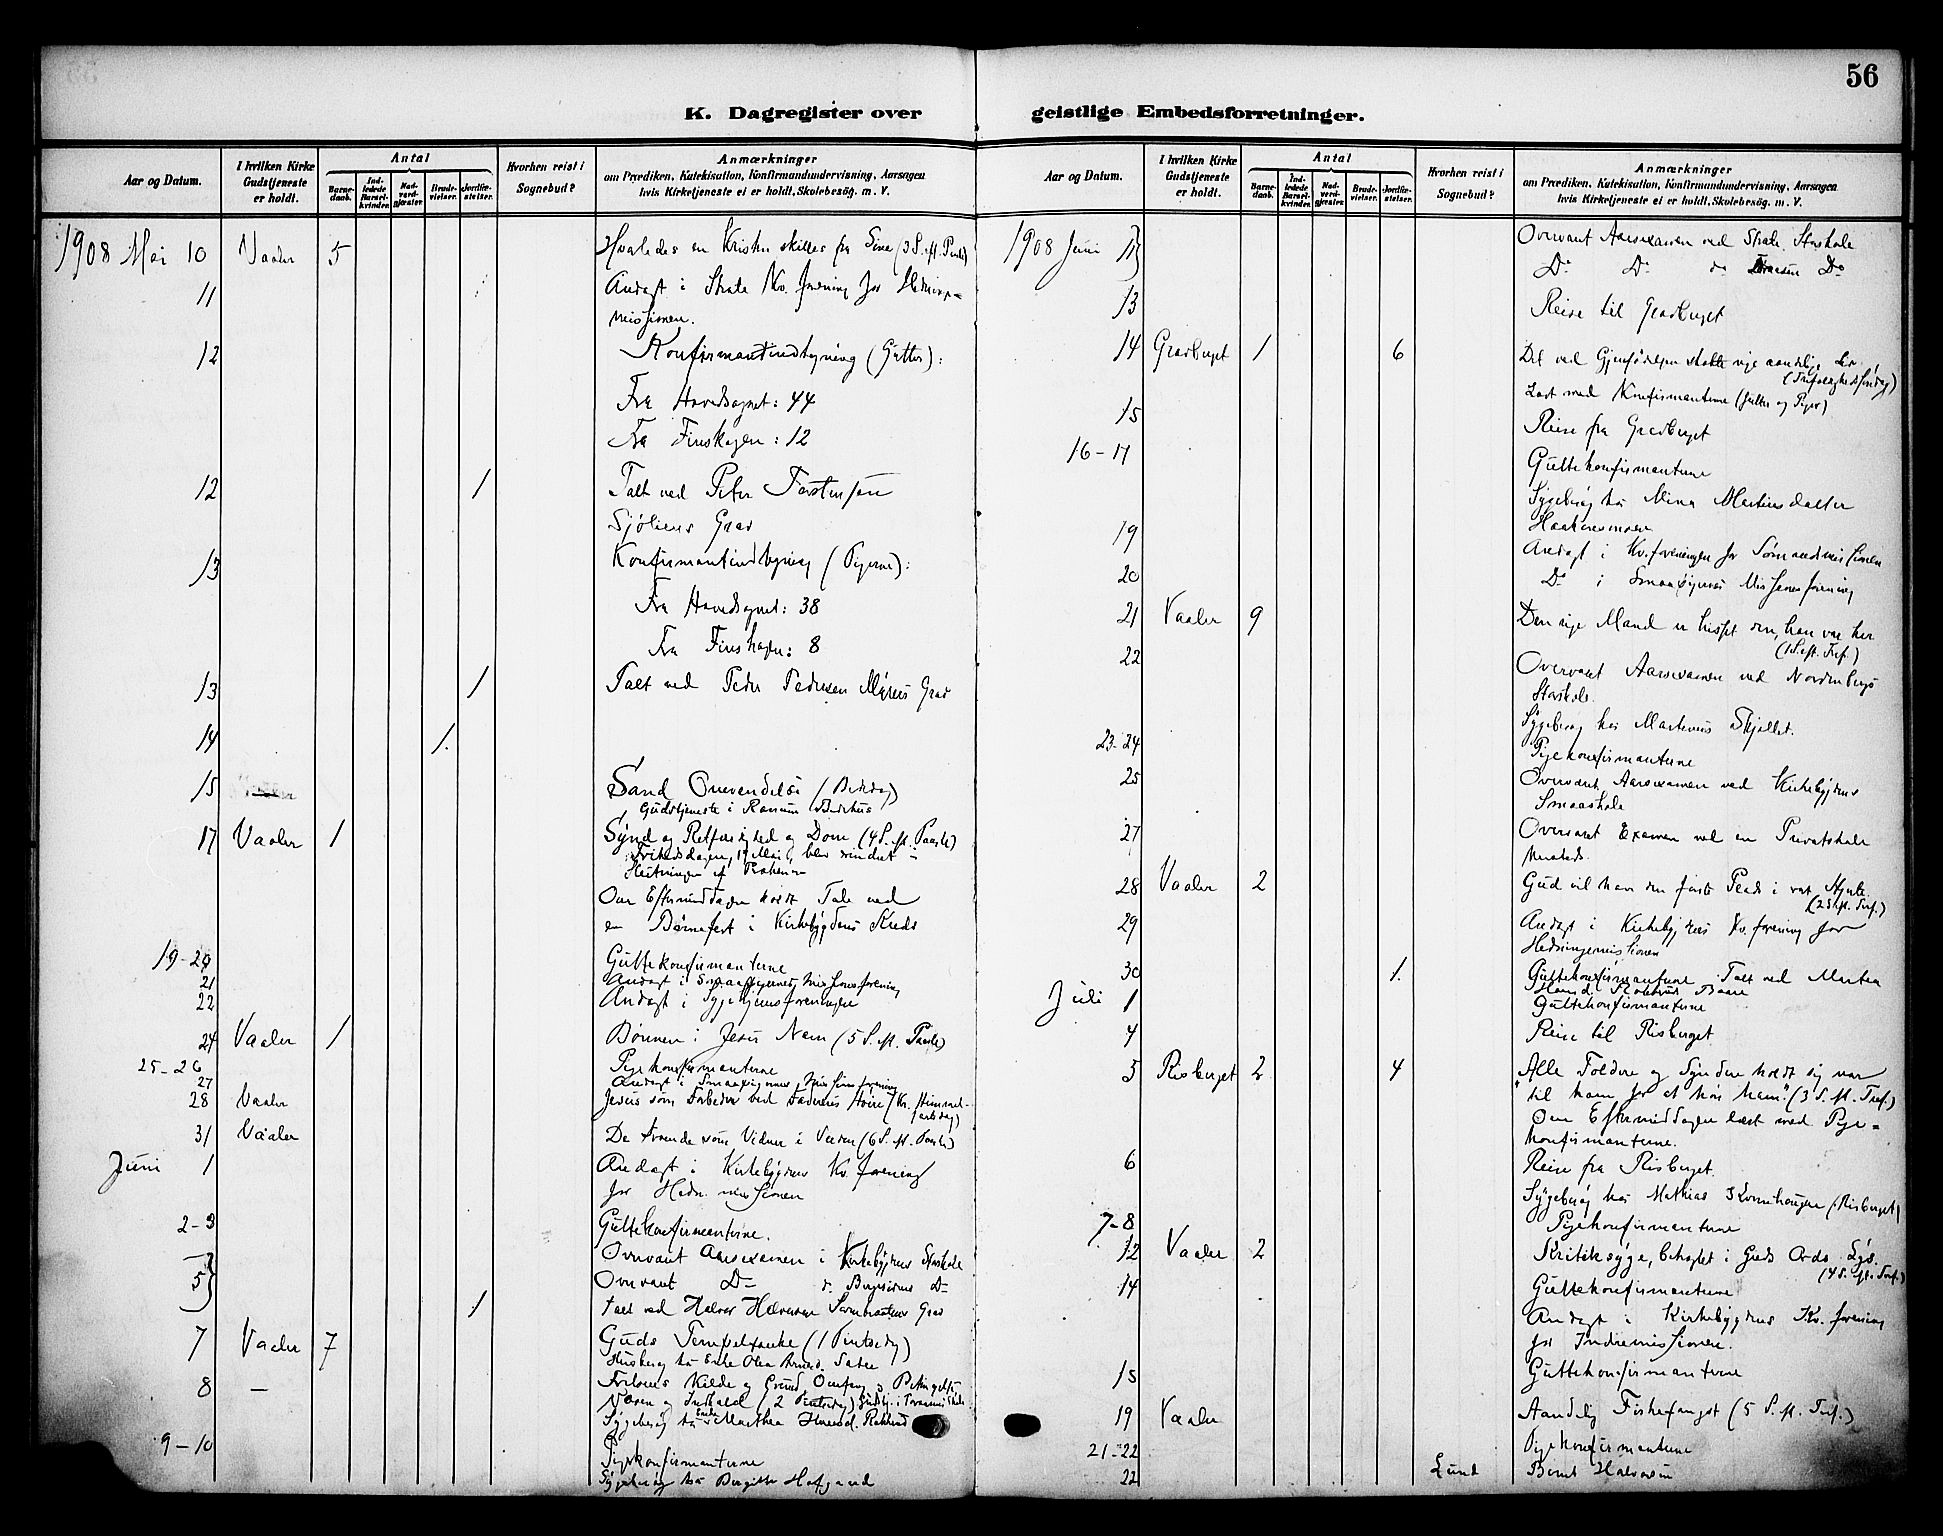 56
K. Dagregister over geistlige Embedsforretninger.
Aar og Datum.
I hvilken Kirke Gudstjeneste er holdt.
Antal
Barne-daab.
Ind-ledede Barsel-kvinder.
Nad-verd-gjæster.
Brude-vielser.
Jordfæ-stelser.
Hvorhen reist i Sognebud?
Anmærkninger
om Prædiken, Katekisation, Konfirmandundervisning, Aarsagen
hvis Kirketjeneste ei er holdt, Skolebesøg. m. V.
1908 Mai 10 Vaaler 5 Hvaledes en Kristen skilles fra Sine (3 S. ft. Paaske)
11 Andagt i Strate Kv. forening for Hedninge-
missionen.
12 Konfirmantindtegning (Gutter):
Fra Hovedsognet: 44
Fra Finskogen: 12
12 1 Talt ved Peter Torstensen
Sjøliens Grav
13 Konfirmantindtegning (Pigerne):
Fra Hovedsognet: 38
Fra Finskogen: 8
13 1 Talt ved Peder Pedersen Myrens Grav
14 1.
15 Sand Omvendelse (Bededag)
Gudstjeneste i Bedehus
17 Vaaler 1 Synd og Retfærdighed og Dom (4 S. ft. Paaske)
Frihedsdagen, 17 Mai, blev mindet
Om Eftermiddagen holdt Tale ved
en Børnefest i Kirkebygdens Kreds
19-20 Guttekonfirmanterne
21 Andagt i Smaapigernes Missionsforening
22 Andagt i Sygehjemsforeningen
24 Vaaler 1 Bønnen i Jesus Navn (5 S. ft. Paaske)
25-26 Pigekonfirmanterne
27 Andagt i Smaapigernes Missionsforening
28 Vaaler Jesus som Forbeder ved Faderens Høire (Kr. Himmel-
fartsdag)
31 Vaaler De troende som Vidner i Verden (6 S. ft. Paaske)
Juni 1 Andagt i Kirkebygdens Kv. forening
for Hedn. missionen
2-3 Guttekonfirmanterne.
Overvært Aarsexamen i Kirkebygdens Storskole
5 Overvært Do
1 Talt ved Halvor Halvorsen Grav
7 Vaaler 7 Guds Tempeltanke (1 Pintsedag)
8 —
Sygebesøg hos Enke Marthea
9-10 Pigekonfirmanterne
Sygebesøg hos Birgitte Hofgaard
Aar og Datum.
I hvilken Kirke Gudstjeneste er holdt.
Antal
Barne-daab.
Ind-ledede Barsel-kvinder.
Nad-verd-gjæster.
Brude-vielser.
Jordfæ-stelser.
Hvorhen reist i Sognebud?
Anmærkninger
om Prædiken, Katekisation, Konfirmandundervisning, Aarsagen
hvis Kirketjeneste ei er holdt, Skolebesøg. m. V.
1908 Juni 11 Overvært Aarsexamen ved Strate Storskole
Do Do do Do
13 Reise til Gravberget
14 Gravberget 1 6 Det ved Gjenfødelsen skabte nye aandelige Liv
(Trefoldighedssøndag)
Læst med Konfirmanterne (Gutter og Piger)
15 Reise fra Gravberget
16-17 Guttekonfirmanterne
Sygebesøg hos Mina Martinsdatter
Haakonsmoen
19 Andagt i Kv. foreningen for Sømandsmissionen
20 Do i Smaapigernes Missionsforening
21 Vaaler 9 Den rige Mand er hisset den, han var her
(1 S. ft. Tref.)
22 Overvært Aarsexamen ved Nordenbergs
Storskole.
Sygebesøg hos Martinus Skjellet.
23-24 Pigekonfirmanterne
25 Overvært Aarsexamen ved Kirkebygdens
Smaaskole
27 Overvært Examen ved en Privatskole
28 Vaaler 2 Gud vil have den første Plads i vort Hjerte
(2 S. ft. Tref.)
29 Andagt i Kirkebygdens Kv. forening for
Hedningemissionen
30 1. Guttekonfirmanterne. Talt ved Martea
Baare
Juli 1 Guttekonfirmanterne
4 Reise til Risberget
5 Risberget 2 4 "Alle Toldere og Syndere holdt sig nær
til ham for at høre ham" (3 S. ft. Tref.)
Om Eftermiddagen læst med Pige-
konfirmanterne.
6 Reise fra Risberget
Sygebesøg hos Mathias (Risberget)
7-8 Pigekonfirmanterne
12 Vaaler 2 Kritiksyge, belyst i Guds Ords Lys
(4 S. ft. Tref.)
14 Guttekonfirmanterne
Andagt i Kirkebygdens Kv. forening
for Indremissionen.
15 Guttekonfirmanterne
19 Vaaler Aandelig Fiskefangst (5 S. ft. Tref.)
21-22 Pigekonfirmanterne
22 Lund Bernt Halvorsen